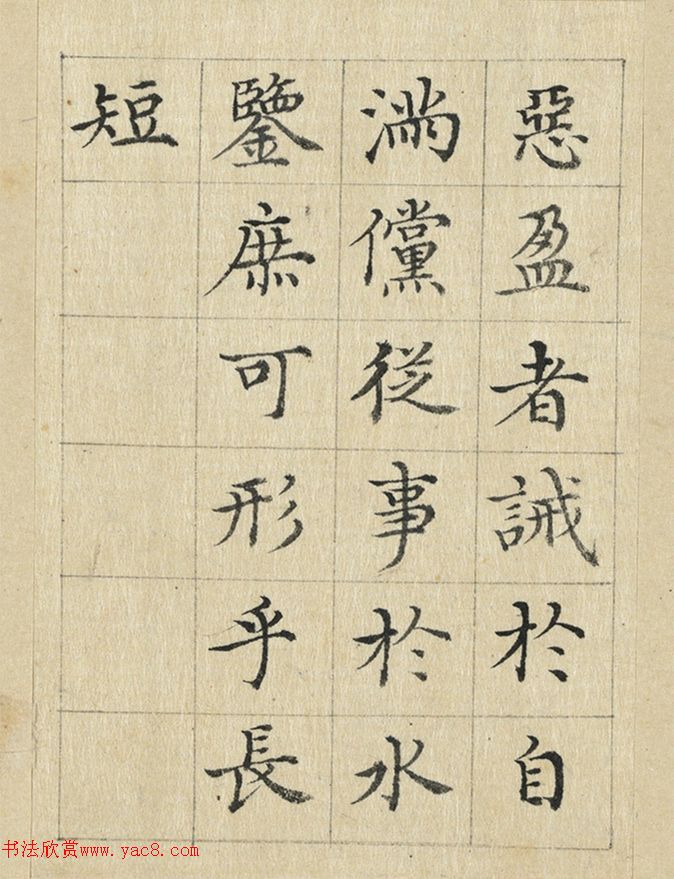 惡盈者誡於自
滿儻從事於水
鑒庶可形乎長
短
书法欣赏www.yac8.com